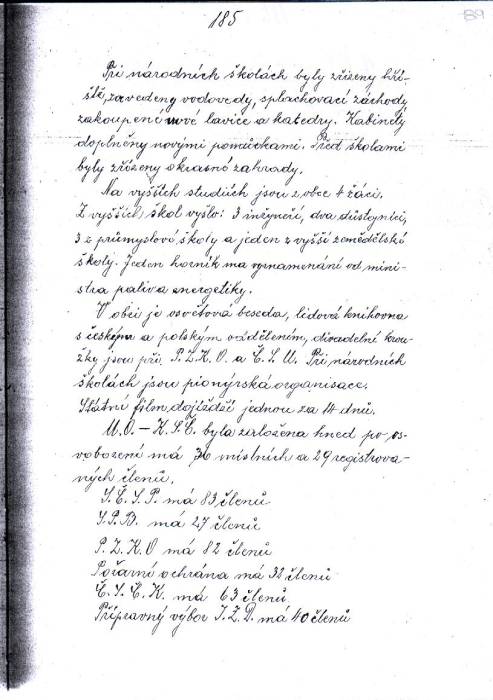 185
B9
Při národních školách byly zřízeny hři-
ště, zavedeny vodovody, splachovací záchody
zakoupené nové lavice a katedry. Kabinety
doplněny novými pomůckami. Před školami
byly zřízeny okrasné zahrady.
Na vyšších studiích jsou z obce 4 žáci.
Z vyšších škol vyšlo: 3 inžynéři, dva důstojníci,
3 z průmyslové školy a jeden z vyšší zemědělské
školy. Jeden horník má vyznamenání od mini-
stra paliv a energetiky.
V obci je osvětová beseda, lidová knihovna
s českým a polským oddělením, divadelní krou-
žky jsou při P.Z.K.O. a Č.S.M. Při národních
školách jsou pionýrská organisace.
Státní film dojíždí jednou za 14 dnů.
M.O. - K.S.Č. byla založena hned po os-
vobození má 36 místních a 29 registrova-
ných členů.
S.Č.S.P. má 83 členů
S.P.B. má 27 členů
P.Z.K.O má 82 členů
Požární ochrana má 32 členů
Č.S.Č.K. má 63 členů
Přípravný výbor J.Z.D. má 40 členů